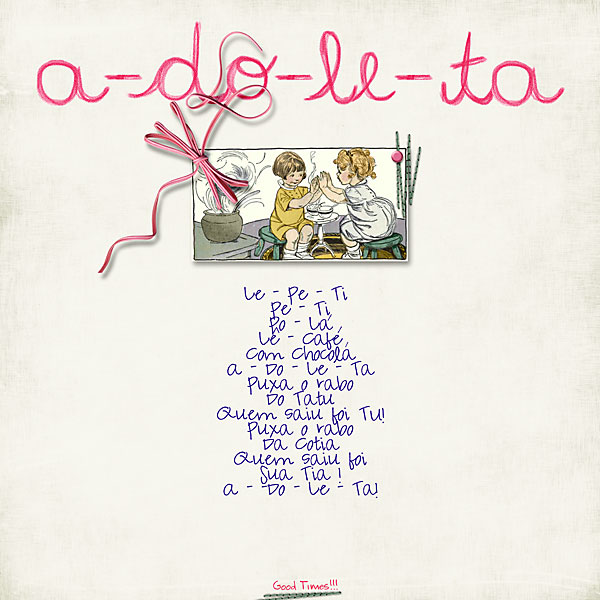 a-do-le-ta
Le - Pe - Ti
Pe - Ti
Po - Lá,
Lê - Café,
Com Chocolá
a - Do - Le - Ta
Puxa o rabo
Do Tatu
Quem saiu foi Tu!
Puxa o rabo
Da Cotia
Quem saiu foi
Sua Tia !
a - Do - Le - Ta!
Good Times!!!